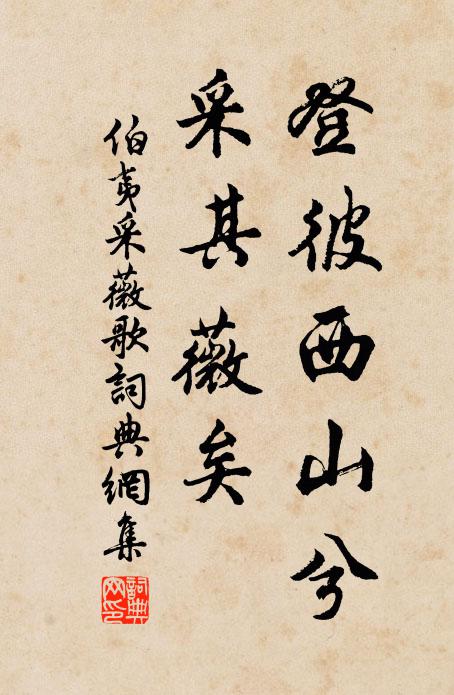 登彼西山兮
采其薇矣
伯夷采薇歌詞典網集
詞典
网印